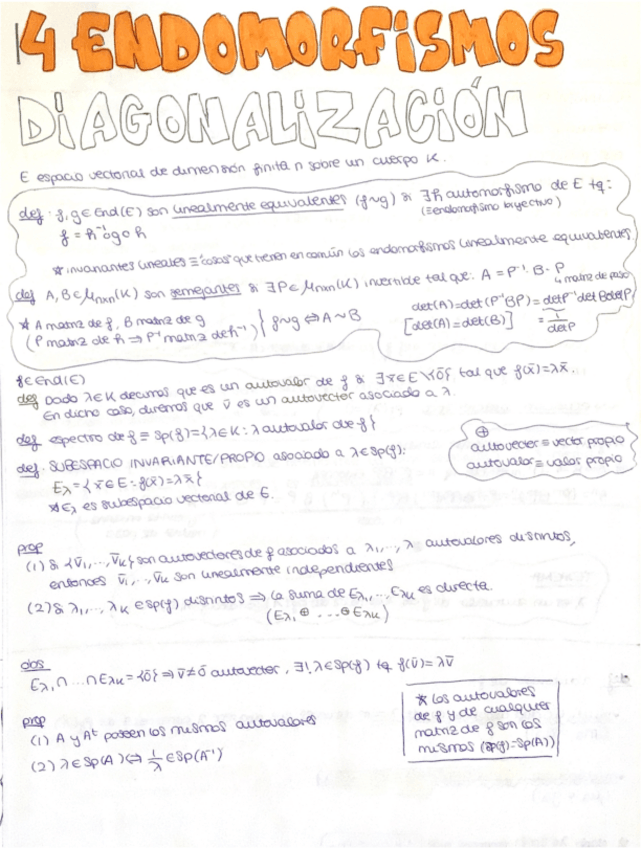 4 ENDOMORFISMOS
DIAGONALIZACIÓN
E espacio vectorial de dimensión finita n sobre un cuerpo K.
def: f, g ∈ End(E) son linealmente equivalentes (f~g) si ∃ h automorfismo de E tq:
f = h⁻¹ o g o h
(≡ endomorfismo biyectivo)
* invariantes lineales ≡ "cosas" que tienen en común los endomorfismos linealmente equivalentes
def A, B ∈ Mnxn(K) son semejantes si ∃ P ∈ Mnxn(K) invertible tal que: A = P⁻¹ · B · P
↳ matriz de paso
* A matriz de f, B matriz de g
(P matriz de h ⇒ P⁻¹ matriz de h⁻¹) } f~g ⇔ A~B
det(A) = det(P⁻¹BP) = det P⁻¹ det B det P
[det(A) = det(B)]
= 1/det P
f ∈ End(E)
def Dado λ ∈ K decimos que es un autovalor de f si ∃ v̄ ∈ E \ {ō} tal que f(v̄) = λv̄.
En dicho caso, diremos que v̄ es un autovector asociado a λ.
def espectro de f ≡ Sp(f) = {λ ∈ K : λ autovalor de f}
def: SUBESPACIO INVARIANTE/PROPIO asociado a λ ∈ Sp(f):
Eλ = {v̄ ∈ E : f(v̄) = λv̄}
* Eλ es subespacio vectorial de E.
⊕
autovector ≡ vector propio
autovalor ≡ valor propio
prop
(1) Si {v̄₁, ..., v̄k} son autovectores de f asociados a λ₁, ..., λ autovalores distintos,
entonces v̄₁, ..., v̄k son linealmente independientes
(2) Si λ₁, ..., λk ∈ Sp(f) distintos ⇒ la suma de Eλ₁, ..., Eλk es directa.
(Eλ₁ ⊕ ... ⊕ Eλk)
obs
Eλ₁ ∩ ... ∩ Eλk = {ō} ⇒ v̄ ≠ ō autovector, ∃! λ ∈ Sp(f) tq f(v̄) = λv̄
prop
(1) A y Aᵗ poseen los mismos autovalores
(2) λ ∈ Sp(A) ⇔ 1/λ ∈ Sp(A⁻¹)
* Los autovalores
de f y de cualquier
matriz de f son los
mismos (Sp(f) = Sp(A))